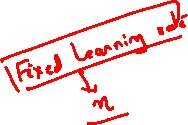 Fixed Learning rate
n